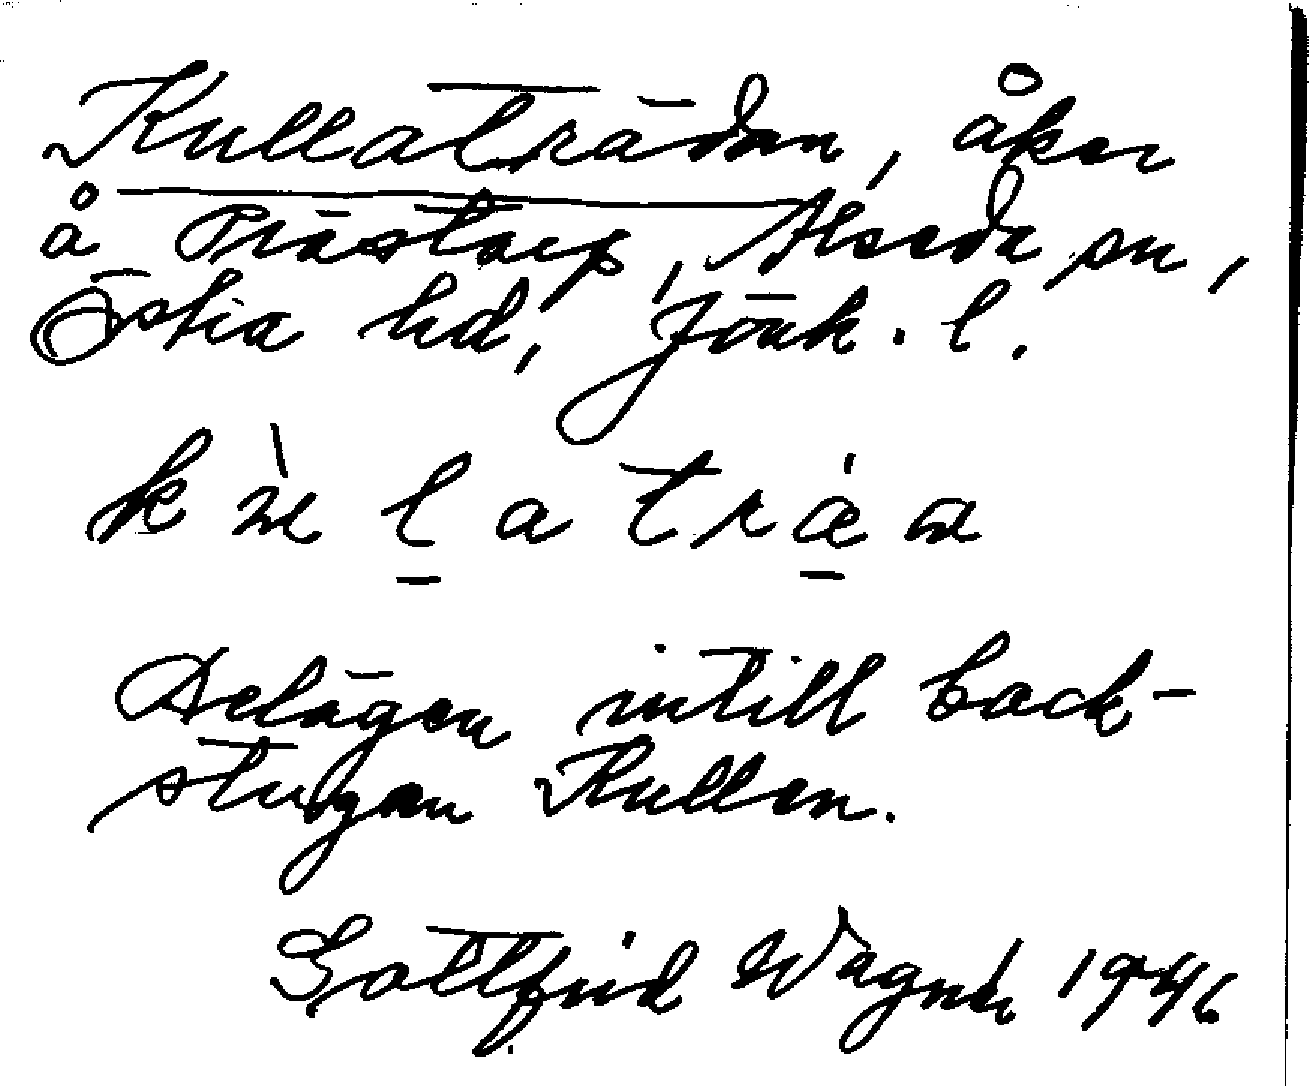 Kullaträdan, åker
å Prästorp, Alseda sn,
Östra hd, Jönk. l.
Belägen intill back-
stugan Kullen.
Gottfrid Wagnér 1946